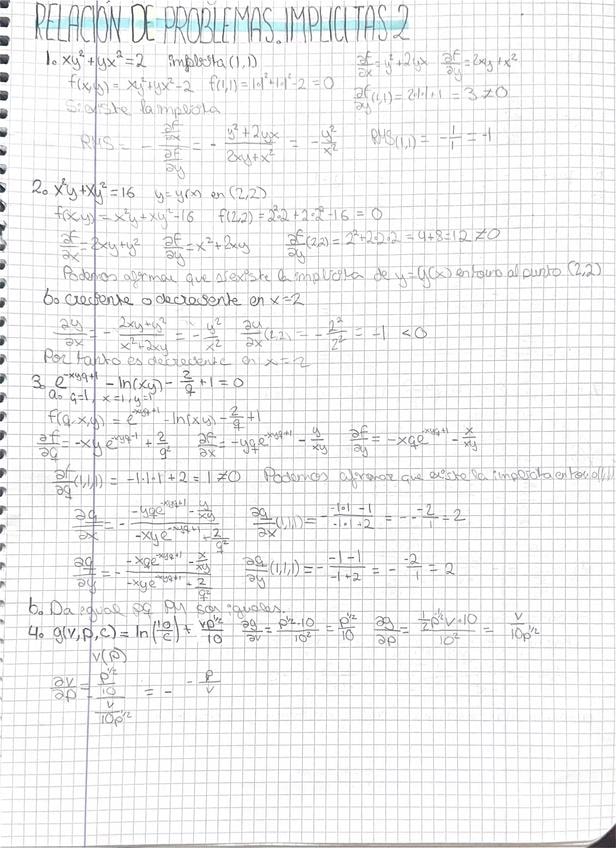 RELACIÓN DE PROBLEMAS. IMPLICITAS 2
1. xy²+yx²=2 implícita (1,1) ∂f/∂x = y²+2yx ∂f/∂y = 2xy+x²
f(x,y) = xy²+yx²-2 f(1,1) = 1·1²+1·1²-2 = 0 ∂f/∂y (1,1) = 2·1·1+1 = 3 ≠ 0
Si existe la implícita
RMS = - (∂f/∂x)/(∂f/∂y) = - (y²+2yx)/(2xy+x²) = - y²/x² RMS(1,1) = - 1/1 = -1
2. x²y+xy²=16 y=y(x) en (2,2)
f(x,y) = x²y+xy²-16 f(2,2) = 2²·2+2·2²-16 = 0
∂f/∂x = 2xy+y² ∂f/∂y = x²+2xy ∂f/∂y (2,2) = 2²+2·2·2 = 4+8=12 ≠ 0
Podemos afirmar que existe la implícita de y=y(x) entorno al punto (2,2)
b. Creciente o decreciente en x=2
∂y/∂x = - (2xy+y²)/(x²+2xy) = - y²/x² ∂y/∂x (2,2) = - 2²/2² = -1 < 0
Por tanto es decreciente en x=2
3. e^(-xyq+1) - ln(xy) - 2/q + 1 = 0
a. q=1, x=1, y=1
f(q,x,y) = e^(-xyq+1) - ln(xy) - 2/q + 1
∂f/∂q = -xy e^(-xyq+1) + 2/q² ∂f/∂x = -yq e^(-xyq+1) - y/xy ∂f/∂y = -xq e^(-xyq+1) - x/xy
∂f/∂q (1,1,1) = -1·1·1+2 = 1 ≠ 0 Podemos afirmar que existe la implícita entorno al (1,1)
∂q/∂x = - (-yq e^(-xyq+1) - y/xy)/(-xy e^(-xyq+1) + 2/q²) ∂q/∂x (1,1,1) = - (-1·1-1)/(-1·1+2) = - -2/1 = 2
∂q/∂y = - (-xq e^(-xyq+1) - x/xy)/(-xy e^(-xyq+1) - 2/q²) ∂q/∂y (1,1,1) = - (-1-1)/(-1+2) = - -2/1 = 2
b. Da igual pq son iguales.
4. g(v,p,c) = ln(10/c) + vp^(1/2)/10 ∂g/∂v = p^(1/2)·10/10² = p^(1/2)/10 ∂g/∂p = (1/2 p^(-1/2) v·10)/10² = v/10p^(1/2)
v(p)
∂v/∂p = (p^(1/2)/10)/(v/10p^(1/2)) = - - p/v